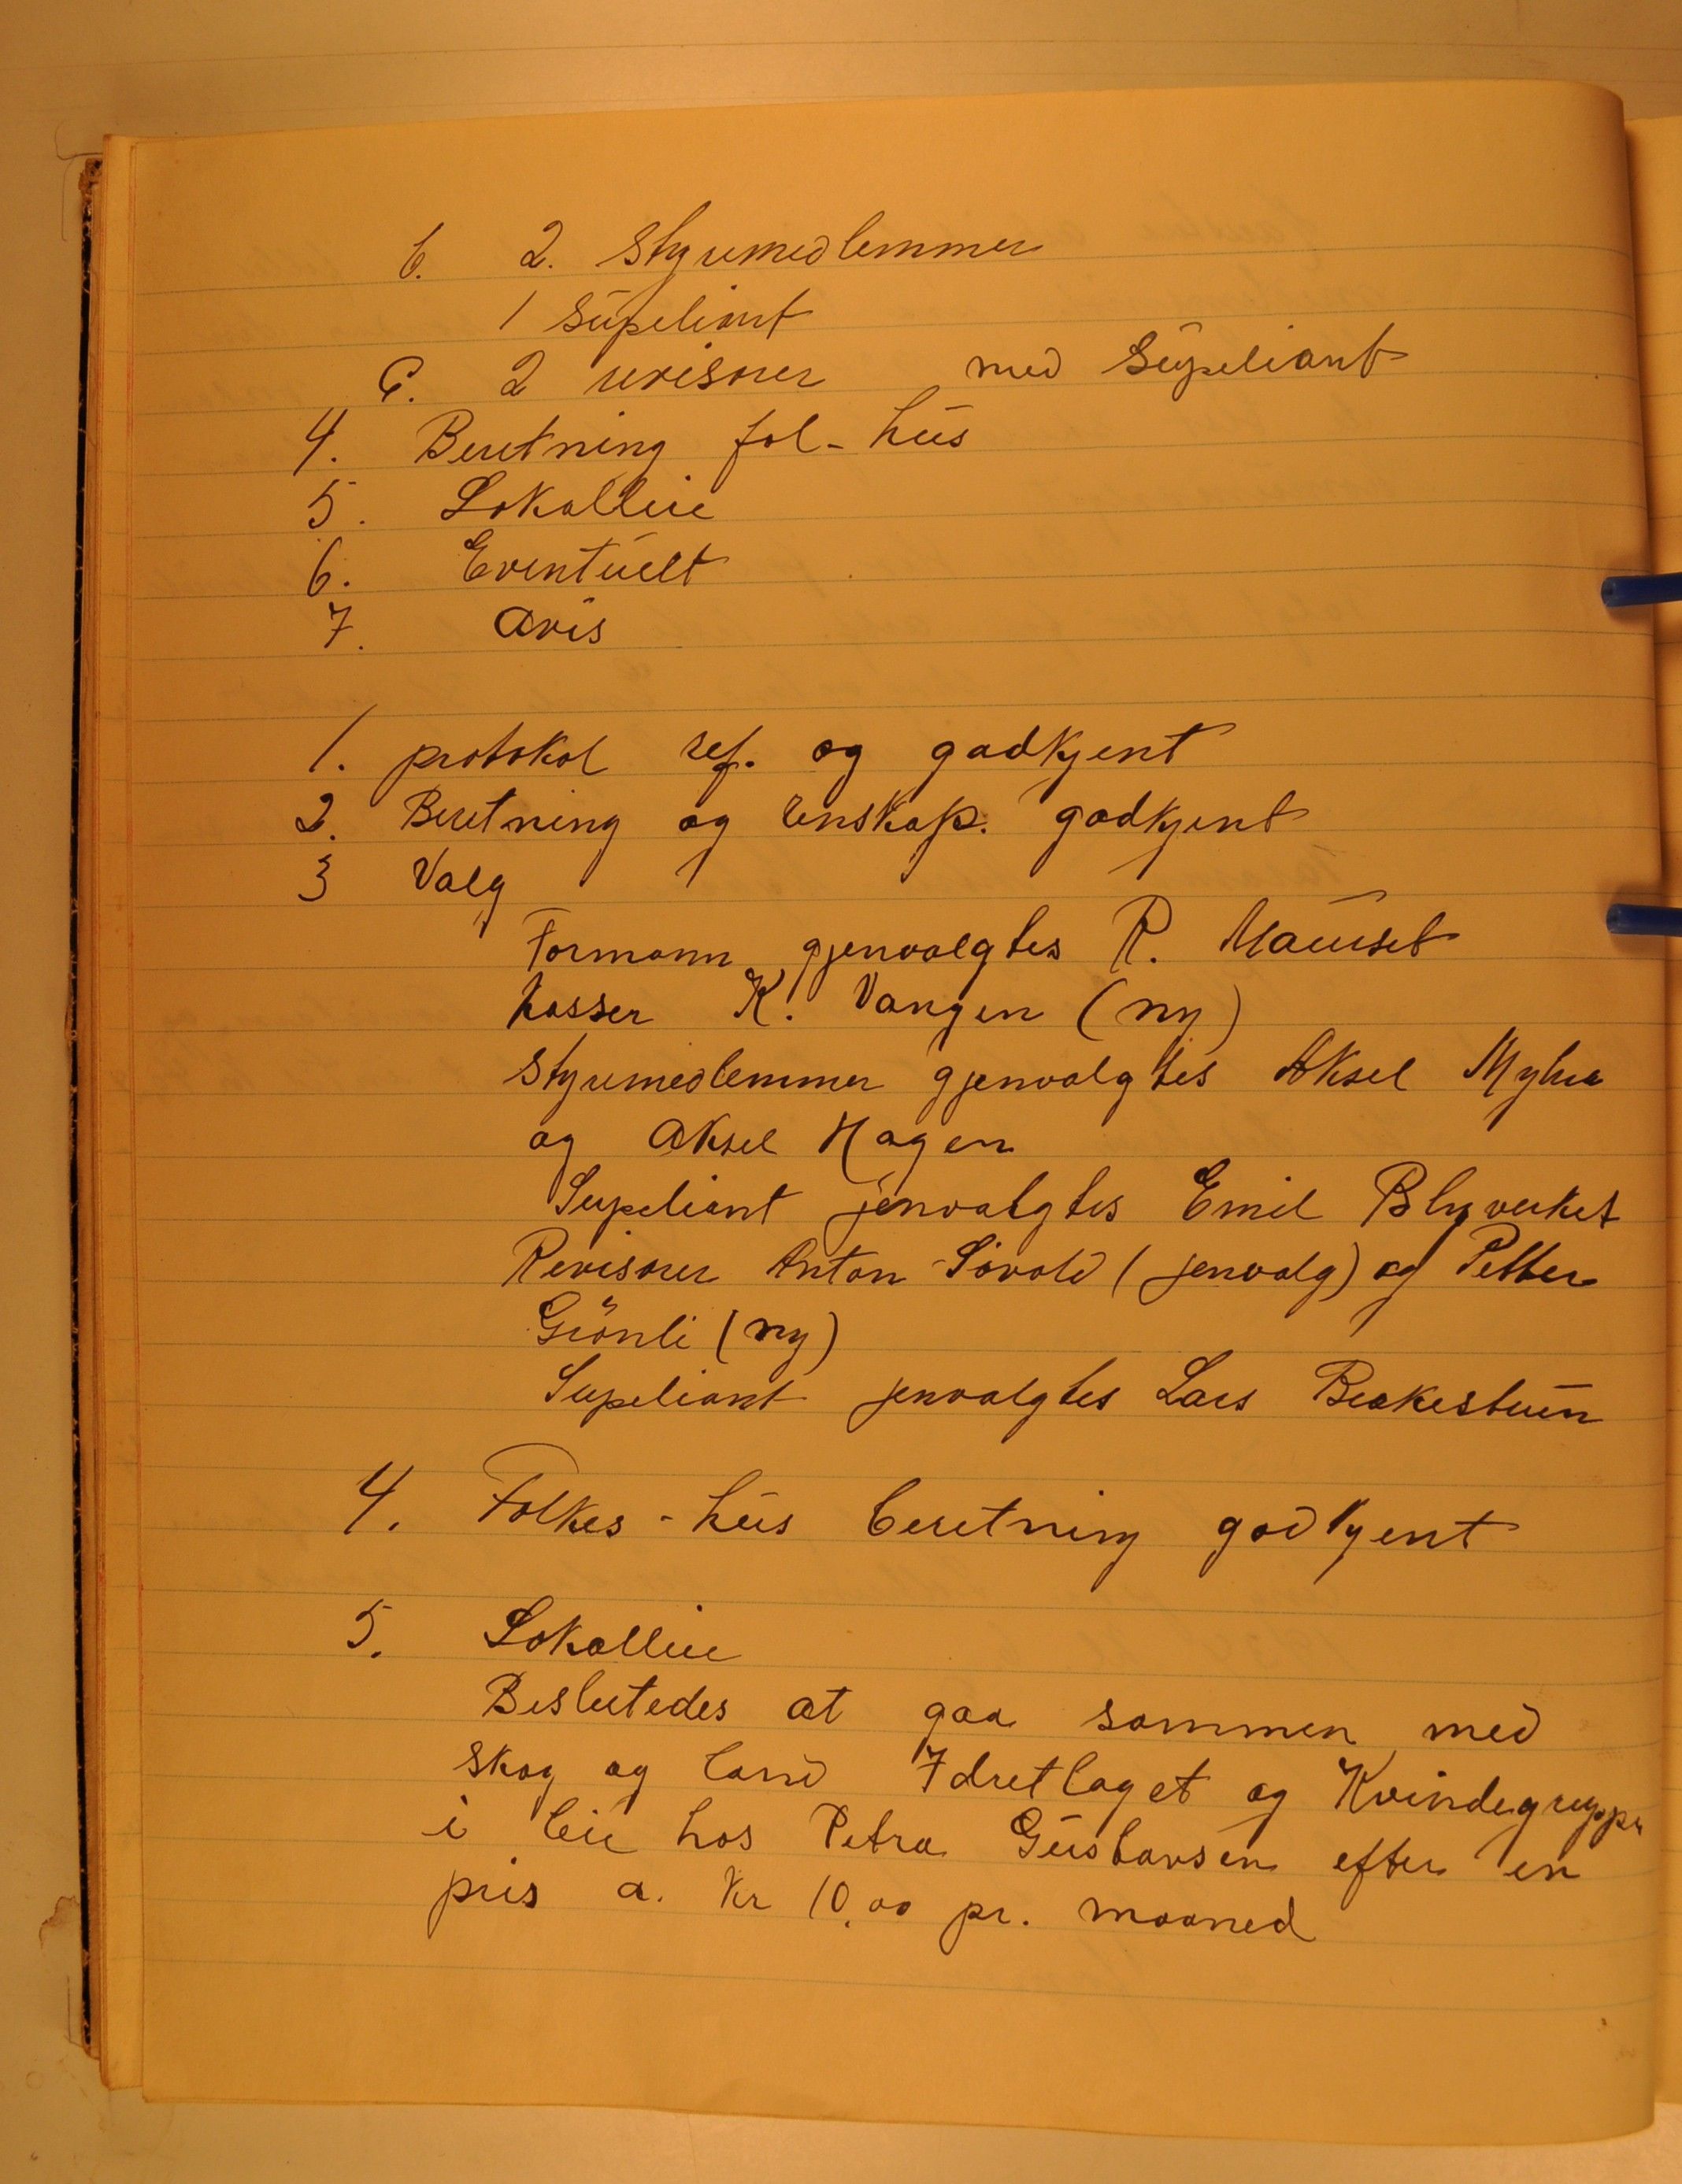 b. 2. Styremedlemmer
1 Supeliant
C. 2 revisorer med Supeliant
4. Beretning fol-hus
5. Lokalleie
6. Eventuelt
7. Avis
1. protokol ref. og godkjent
2. Beretning og renskap. godkjent
3 Valg
Formann gjenvalgtes R. Mauset
kasser K. Vangen (ny)
Styremedlemmer gjenvalgtes Aksel Myhre
og Aksel Hagen
Supeliant jenvalgtes Emil Blyverket
Revisorer Anton Sövold (jenvalg) og Petter
Grönli (ny)
Supeliant jenvalgtes Lars Brakestuen
4. Folkes-hus beretning godkjent
5. Lokalleie
Beslutedes at gaa sammen med
skog og land Idretlaget og Kvindegruppe
i leie hos Petra Gustavsen efter en
pris a. Kr 10,00 pr. maaned